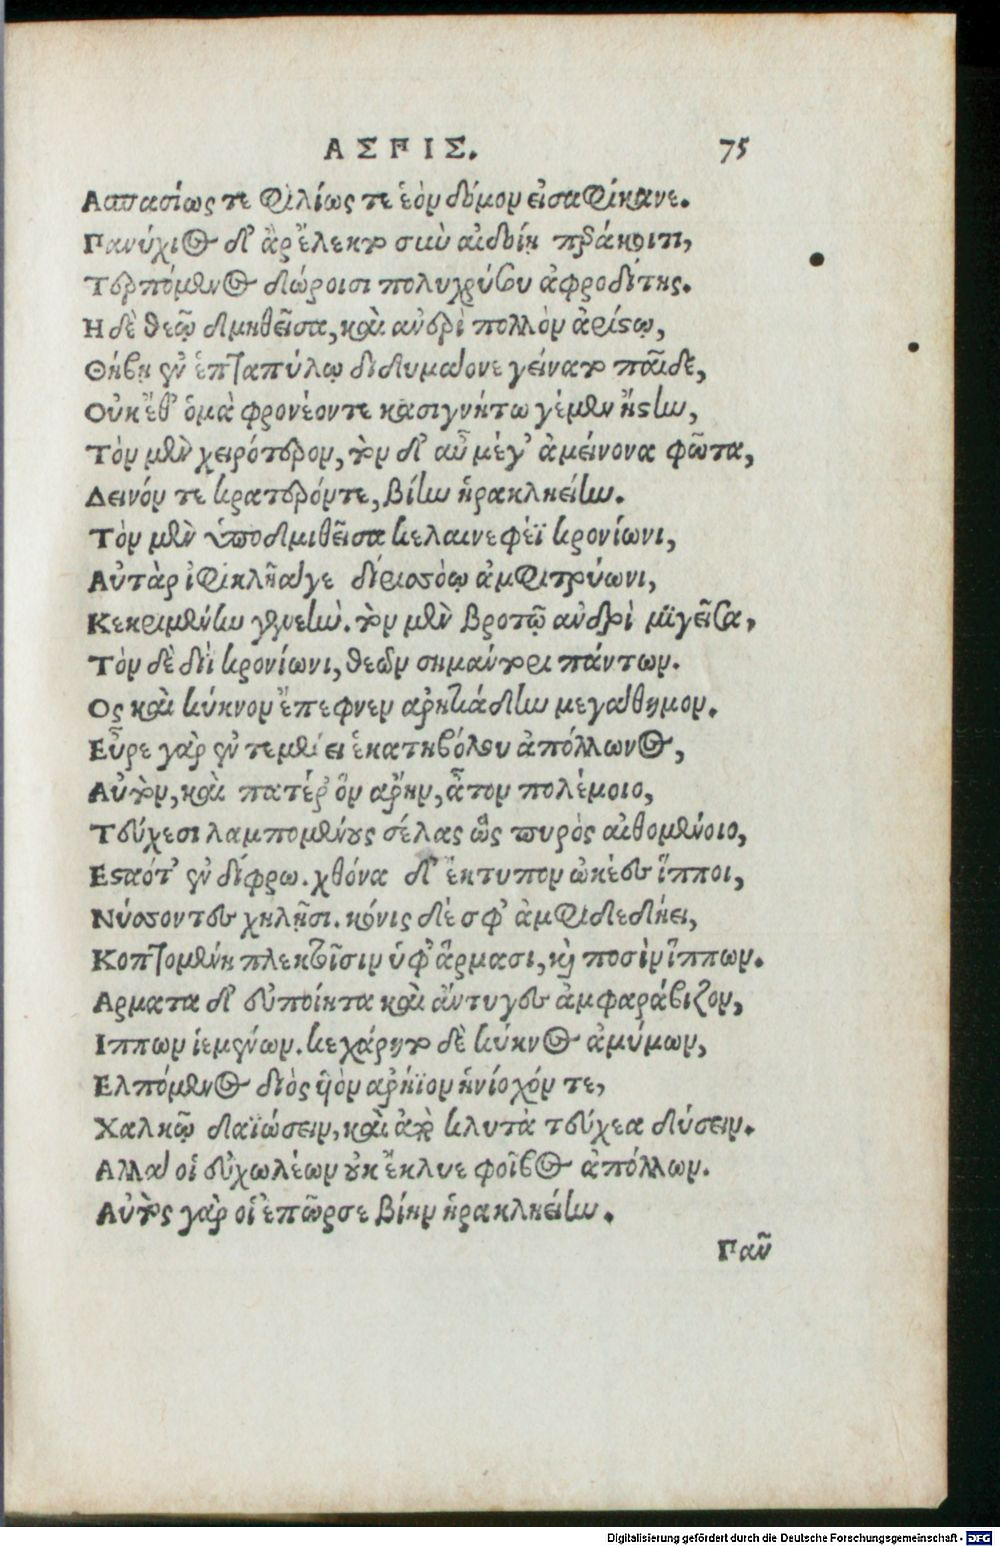 ΑΣΠΙΣ. 75
Ασπασίως τε φιλίως τε ἑὸν δόμον εἰσαφίκανε.
Παννύχιος δ' ἂρ ἔλεκτο σὺν αἰδοίῃ παράκοιτι,
Τερπόμενος δώροισι πολυχρύσου ἀφροδίτης.
Η δὲ θεῷ δμηθεῖσα, καὶ ανδρὶ πολλὸν ἀρίστῳ,
Θήβῃ ἐν ἑπταπύλῳ διδυμάονε γείνατο παῖδε,
Οὐκ ἔθ' ὁμὰ φρονέοντε κασιγνήτω γέ μὲν ἤστην,
Τὸν μὲν χειρότερον, τὸν δ' αὖ μέγ' ἀμείνονα φῶτα,
Δεινόν τε κρατερόντε, βίην ἡρακληείην.
Τὸν μὲν ὑποδμιθεῖσα κελαινεφέϊ κρονίωνι,
Αὐτὰρ ἰφικλῆάγε δορυσσόῳ ἀμφιτρύωνι,
Κεκριμένην γενεὴν. τὸν μὲν βροτῷ ανδρὶ μϊγεῖσα,
Τὸν δὲ διῒ κρονίωνι, θεῶν σημάντορι πάντων.
Ος καὶ κύκνον ἔπεφνεν αρητιάδην μεγάθυμον.
Εὗρε γὰρ ἐν τεμένει ἑκατηβόλου ἀπόλλωνος,
Αὐτὸν, καὶ πατέρ' ὃν αρην, ἆτον πολέμοιο,
Τεύχεσι λαμπομένους σέλας ὣς πυρὸς αἰθομένοιο,
Εσταότ' ἐν δίφρω. χθόνα δ' ἔκτυπον ὠκέες ἵπποι,
Νύσσοντες χηλῇσι. κόνις δέ σφ' ἀμφιδεδήει,
Κοπτομένη πλεκτοῖσιν ὑφ' ἅρμασι, καὶ ποσὶν ἵππων.
Αρματα δ' εὐποίητα καὶ ἄντυγες ἀμφαράβιζον,
Ιππων ἱεμένων. κεχάρητο δὲ κύκνος ἀμύμων,
Ελπόμενος διὸς ὑὸν αρήϊον ἡνίοχόν τε,
Χαλκῷ δαϊώσειν, καὶ ἀπὸ κλυτὰ τεύχεα δύσειν.
Αλλά οἱ εὐχωλέων οὐκ ἔκλυε φοῖβος ἀπόλλων.
Αὐτὸς γὰρ οἱ ἐπῶρσε βίην ἡρακληείην.
Παν
Digitalisierung gefördert durch die Deutsche Forschungsgemeinschaft - DFG